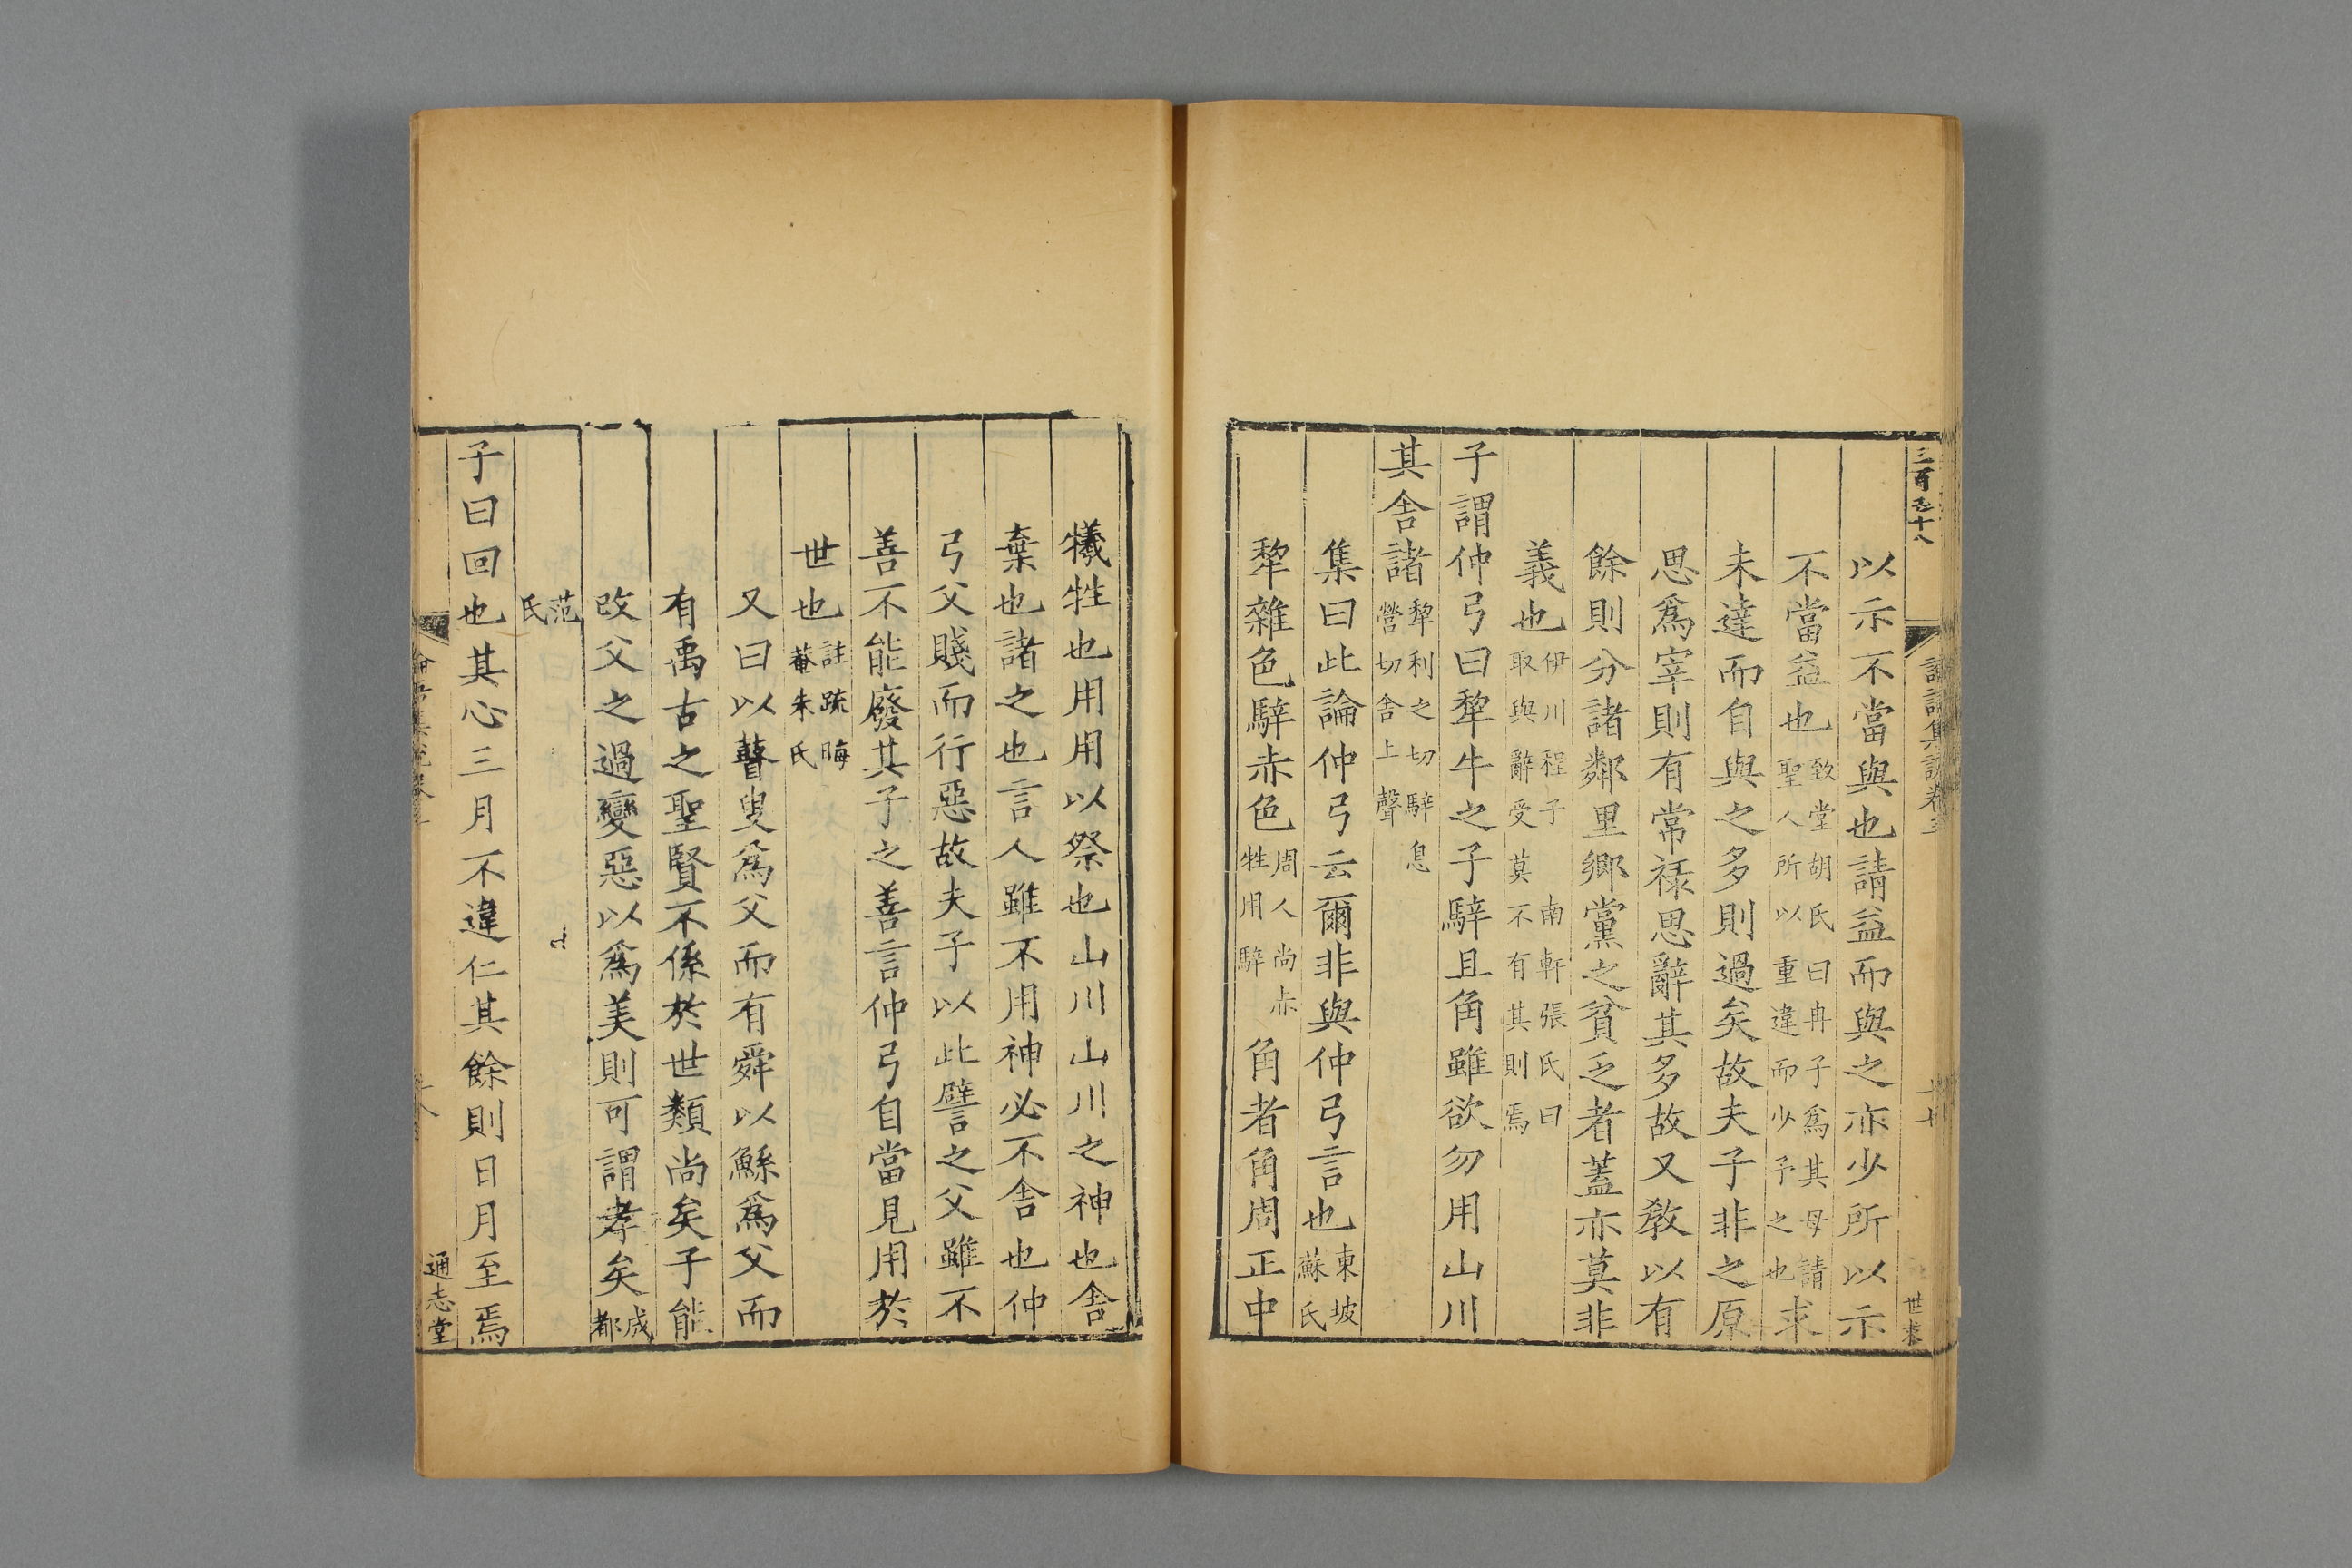 三百五十八
論語集說卷三
十七
世求
以示不當與也請益而與之亦少所以示
不當益也致堂胡氏曰冉子爲其母請聖人所以重違而少予之也求
未達而自與之多則過矣故夫子非之原
思爲宰則有常祿思辭其多故又敎以有
餘則分諸鄰里鄉黨之貧乏者蓋亦莫非
義也伊川程子　南軒張氏曰取與辭受莫不有其則焉
子謂仲弓曰犂牛之子騂且角雖欲勿用山川
其舍諸犂利之切騂息營切舍上聲
集曰此論仲弓云爾非與仲弓言也東坡蘇氏
犂雜色騂赤色周人尚赤牲用騂角者角周正中
犧牲也用用以祭也山川山川之神也舍
棄也諸之也言人雖不用神必不舍也仲
弓父賤而行惡故夫子以此譬之父雖不
善不能廢其子之善言仲弓自當見用於
世也註疏　晦菴朱氏
又曰以瞽叟爲父而有舜以鯀爲父而
有禹古之聖賢不係於世類尚矣子能
改父之過變惡以爲美則可謂孝矣成都
范氏
子曰回也其心三月不違仁其餘則日月至焉
論語集說卷三
通志堂